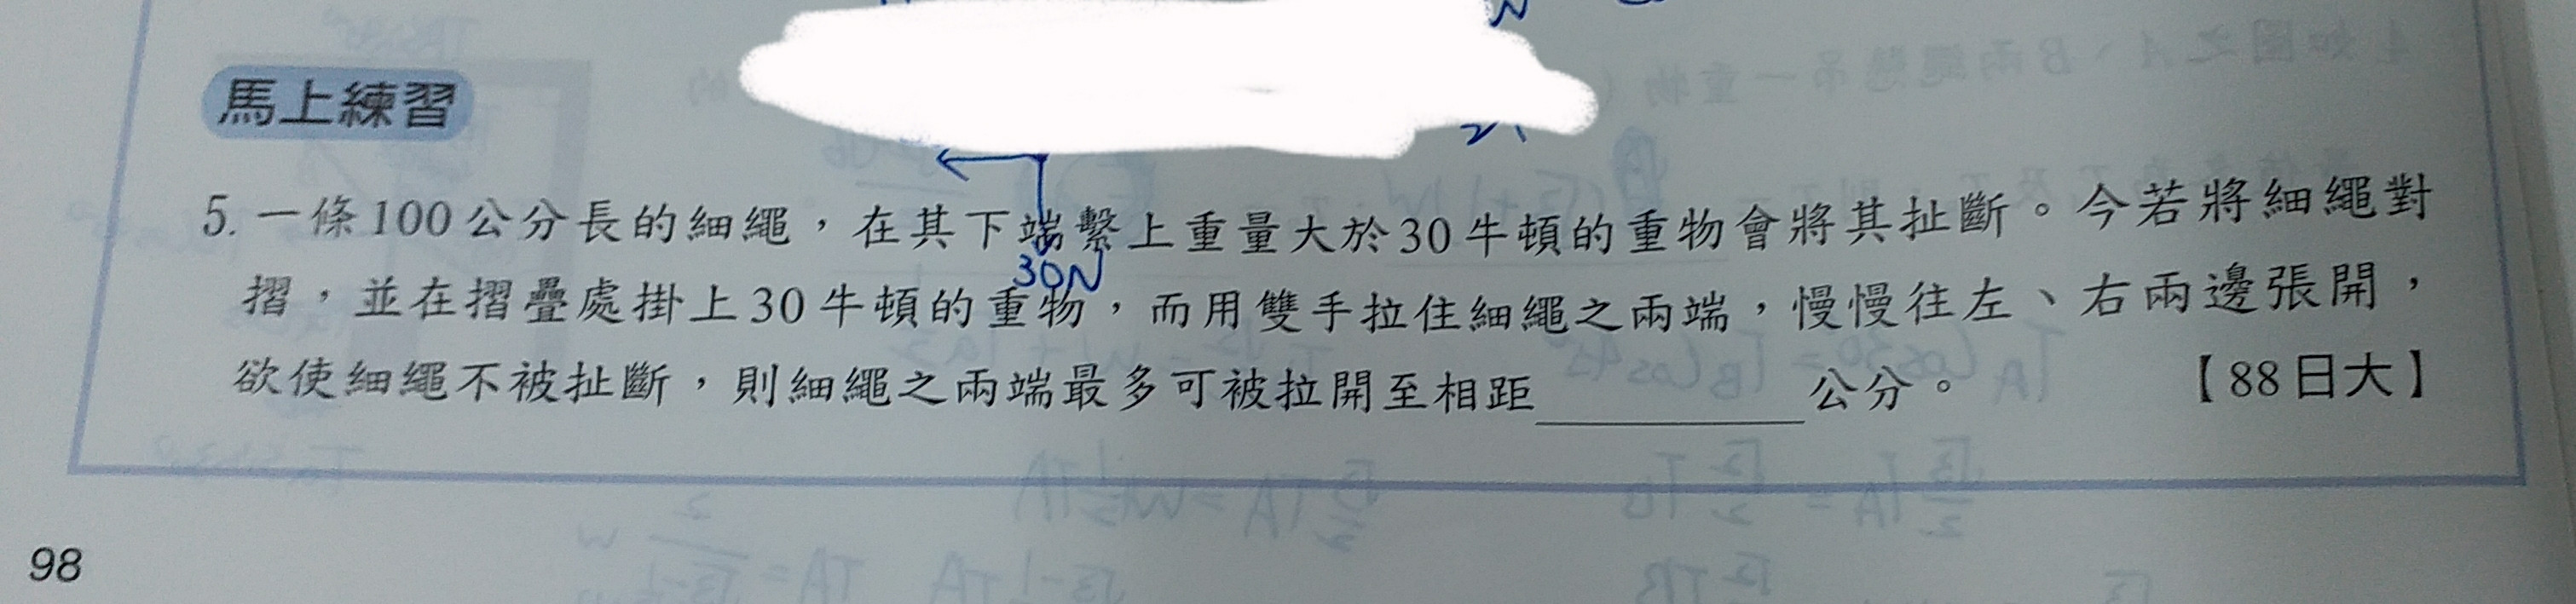 馬上練習
5. 一條100公分長的細繩，在其下端繫上重量大於30牛頓的重物會將其扯斷。今若將細繩對
30N
摺，並在摺疊處掛上30牛頓的重物，而用雙手拉住細繩之兩端，慢慢往左、右兩邊張開，
欲使細繩不被扯斷，則細繩之兩端最多可被拉開至相距________公分。【88日大】
98